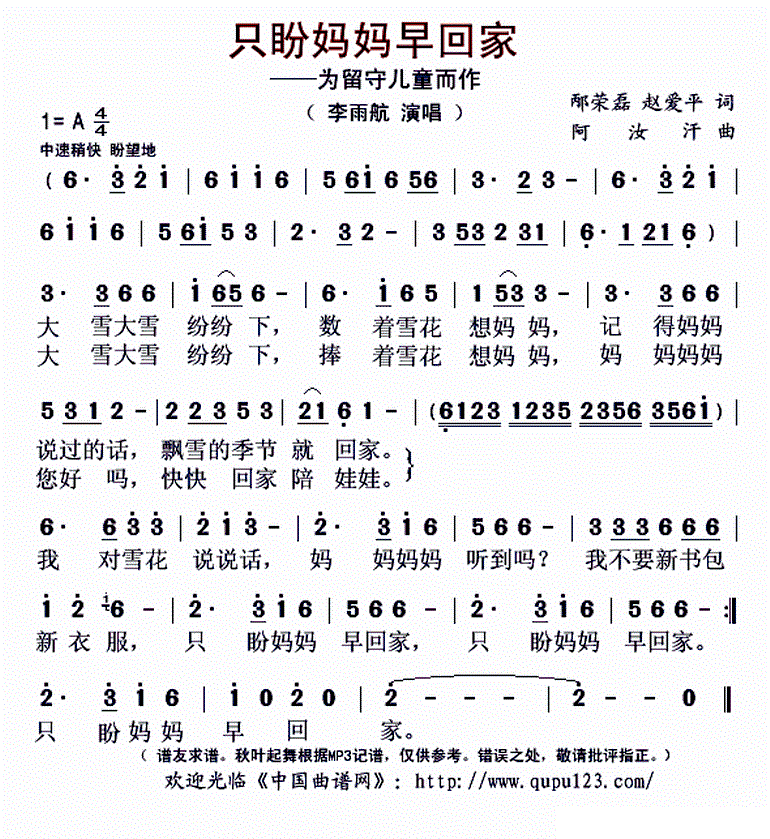 只盼妈妈早回家
——为留守儿童而作
（ 李雨航 演唱 ）
邴荣磊 赵爱平 词
阿 汝 汗 曲
1= A 4/4
中速稍快 盼望地
( 6· 3 2 1 | 6 1 1 6 | 5 6 1 6 5 6 | 3· 2 3 - | 6· 3 2 1 |
6 1 1 6 | 5 6 1 5 3 | 2· 3 2 - | 3 5 3 2 3 1 | 6· 1 2 1 6 ) |
3· 3 6 6 | 1 6 5 6 - | 6· 1 6 5 | 1 5 3 3 - | 3· 3 6 6 |
大 雪大雪 纷纷 下， 数 着雪花 想妈 妈， 记 得妈妈
大 雪大雪 纷纷 下， 捧 着雪花 想妈 妈， 妈 妈妈妈
5 3 1 2 - | 2 2 3 5 3 | 2 1 6 1 - | ( 6123 1235 2356 3561 ) |
说过的话， 飘雪的季节 就 回家。
您好 吗， 快快 回家 陪 娃娃。
6· 6 3 3 | 2 1 3 - | 2· 3 1 6 | 5 6 6 - | 3 3 3 3 6 6 6 |
我 对雪花 说说话， 妈 妈妈妈 听到吗？ 我不要新书包
1 2 1 6 - | 2· 3 1 6 | 5 6 6 - | 2· 3 1 6 | 5 6 6 - :||
新 衣 服， 只 盼妈妈 早回家， 只 盼妈妈 早回家。
2· 3 1 6 | 1 0 2 0 | 2 - - - | 2 - - 0 ||
只 盼 妈 妈 早 回 家。
（ 谱友求谱。秋叶起舞根据MP3记谱，仅供参考。错误之处，敬请批评指正。）
欢迎光临《中国曲谱网》：http://www.qupu123.com/